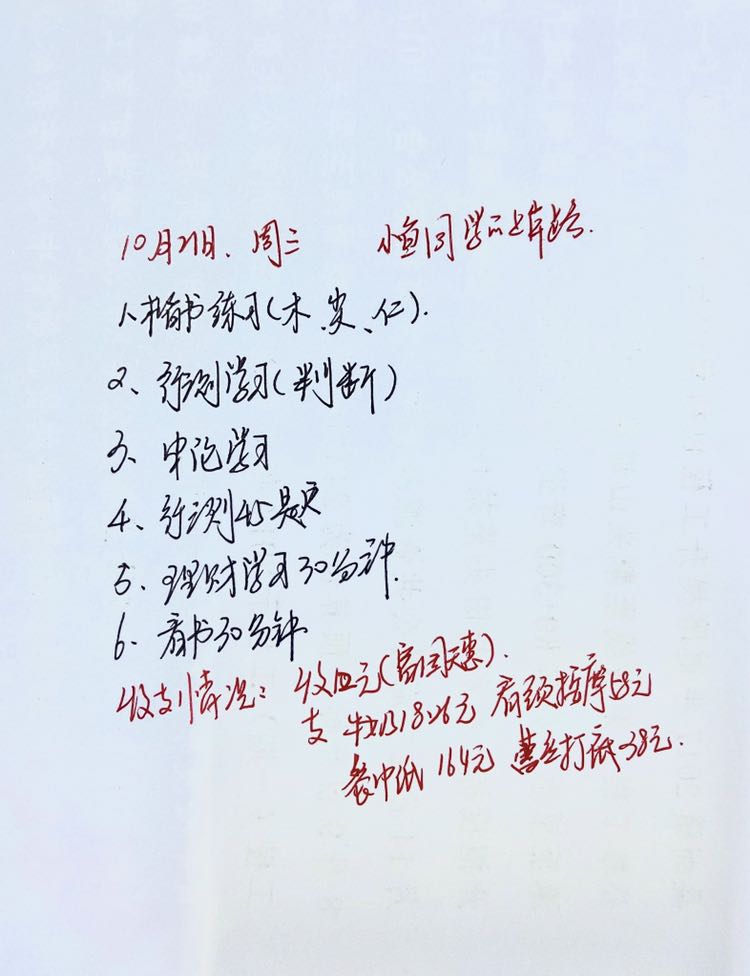 10月21日、周三 小鱼同学的上岸路.
1、楷书练习(木、炭、仁).
2、行测学习(判断)
3、申论学习
4、行测45题
5、理财学习30分钟.
6、看书30分钟
收支情况: 收 元( ).
支 牛奶 元 肩颈按摩58元
餐巾纸 16.4元 蕾丝打底38元.